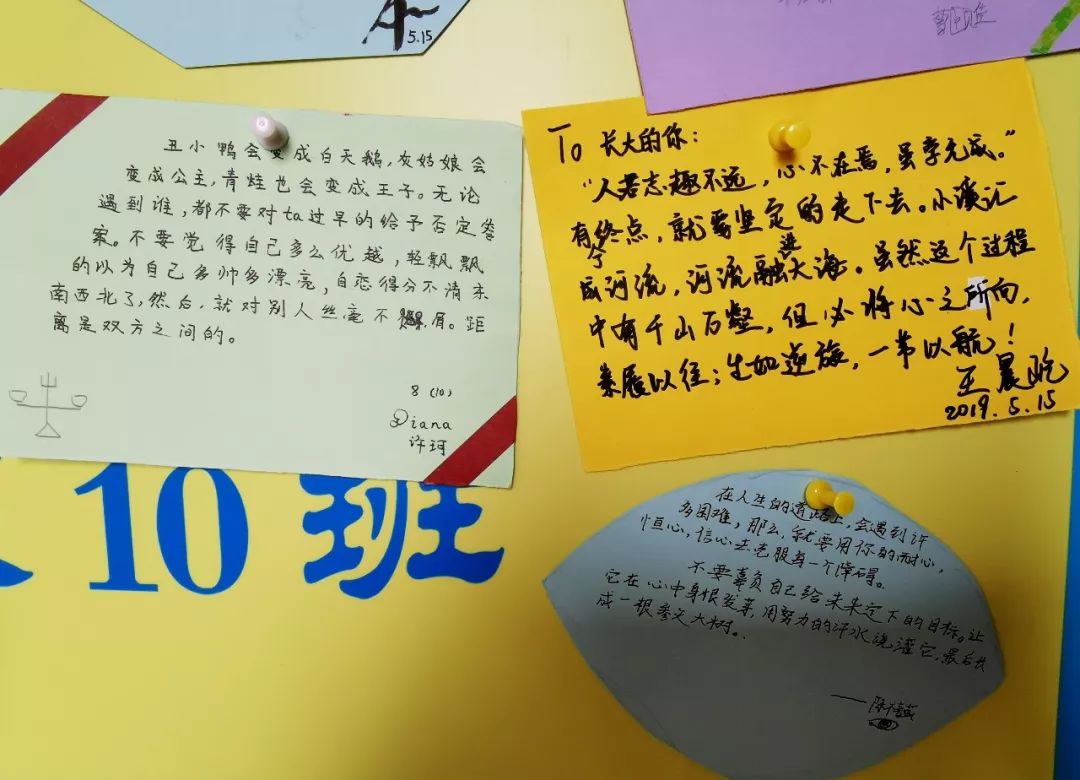 5.15
丑小鸭会变成白天鹅,灰姑娘会
变成公主,青蛙也会变成王子。无论
遇到谁,都不要对ta过早的给予否定答
案。不要觉得自己多么优越,轻飘飘
的以为自己多帅多漂亮,自恋得分不清东
南西北了,然后,就对别人丝毫不屑。距
离是双方之间的。
8(10)
Diana
许珂
To 长大的你:
“人若志趣不远,心不在焉,虽学无成。”
有终点,就要坚定的走下去。小溪汇
成河流,河流融进大海。虽然这个过程
中有千山万壑,但必将心之所向,
素履以往;生如逆旅,一苇以航!
王晨屹
2019.5.15
10班
在人生的道路上,会遇到许
多困难,那么,就要用你的耐心,
恒心,信心去克服每一个障碍。
不要辜负自己给未来定下的目标。让
它在心中身根发芽,用努力的汗水浇灌它,最后长
成一根参天大树。